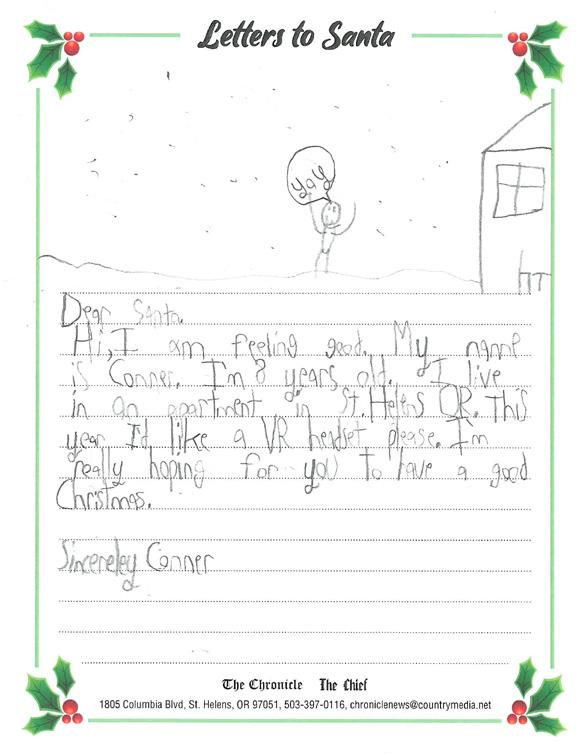 Letters to Santa
yay
Dear Santa.
Hi, I am feeling good. My name
is Conner. I'm 8 years old. I live
in an apartment in St. Helens OR. This
year I'd like a VR headset please. I'm
really hoping for you to have a good
Christmas.
Sincereley Conner
The Chronicle The Chief
1805 Columbia Blvd, St. Helens, OR 97051, 503-397-0116, chroniclenews@countrymedia.net